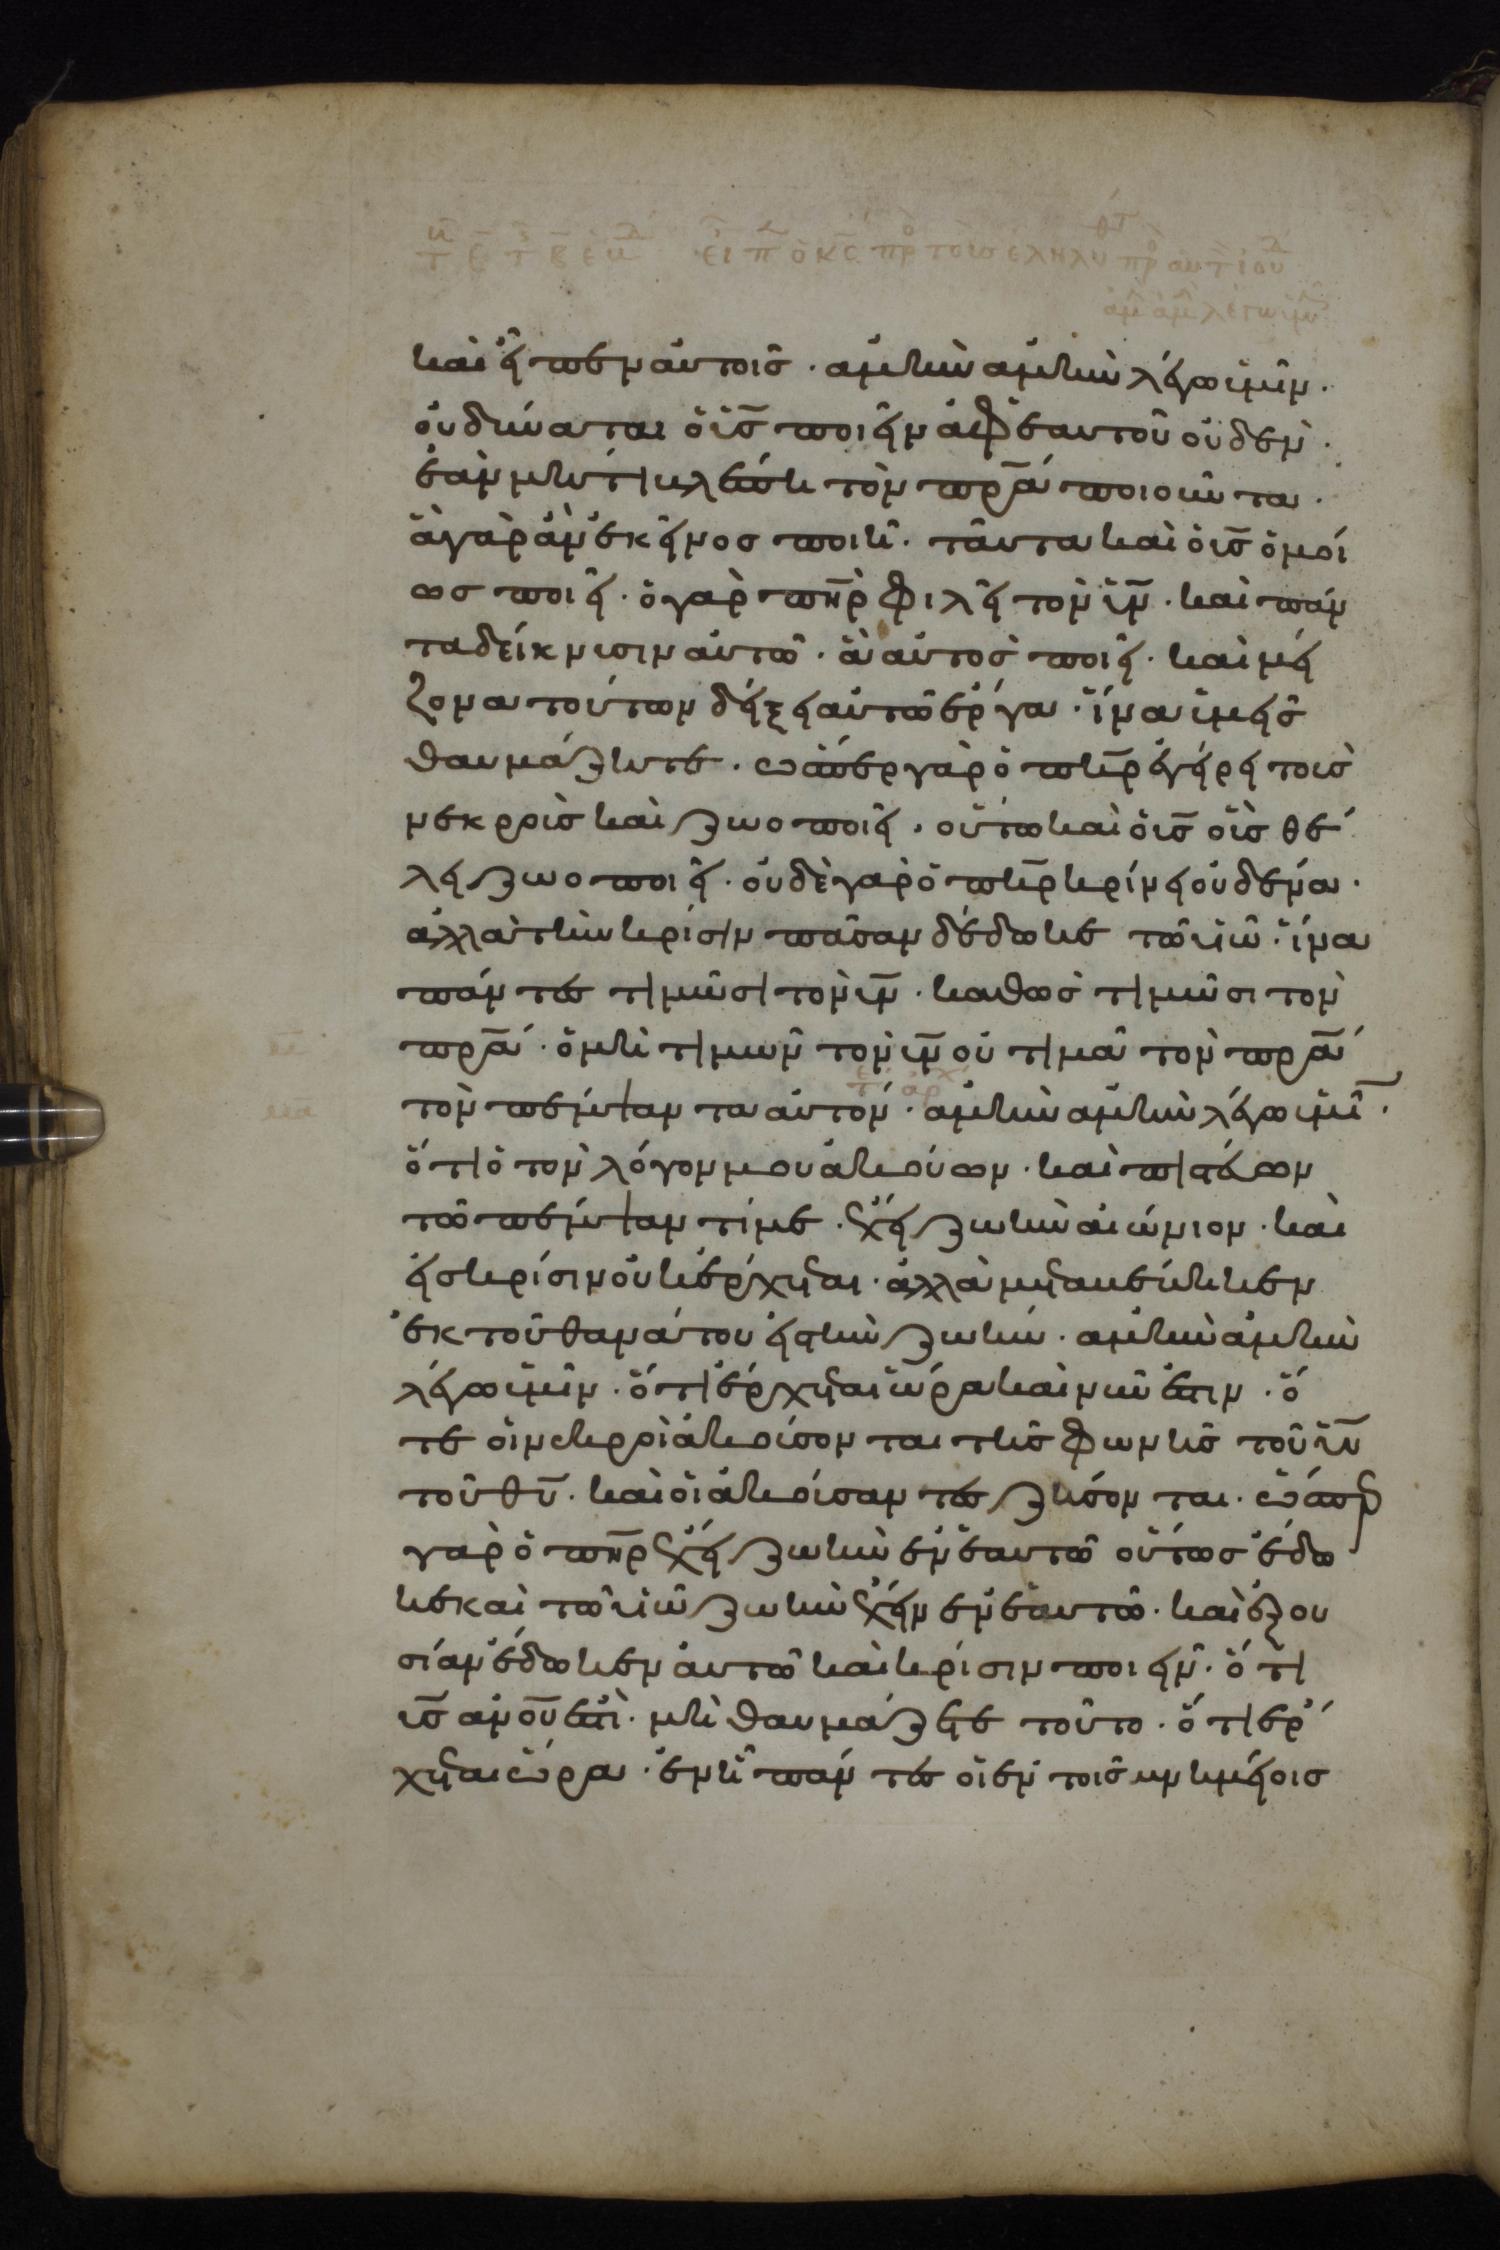 καὶ εἶπεν αὐτοῖς · ἀμὴν ἀμὴν λέγω ὑμῖν ·
οὐ δύναται ὁ υἱ̅ς̅ ποιεῖν ἀφ ἑαυτοῦ οὐδὲν ·
ἐὰν μή τι βλέπη τὸν πρ̅α̅ ποιοῦντα ·
ἃ γὰρ ἂν ἐκεῖνος ποιῆ · ταῦτα καὶ ὁ υι̅ς̅ ὁμοί
ως ποιεῖ · ὁ γὰρ π̅η̅ρ̅ φιλεῖ τὸν υι̅ν̅ · καὶ πάν
τα δείκνυσιν αὐτῶ · ἃ αὐτὸς ποιεῖ · καὶ μεί
ζονα τούτων δείξει αὐτῶ ἔργα · ἵνα ὑμεῖς
θαυμάζητε · ὥσπερ γὰρ ὁ π̅η̅ρ̅ ἐγείρει τοὺς
νεκροὺς καὶ ζωοποιεῖ · οὕτω καὶ ὁ υι̅ς̅ οὓς θέ
λει ζωοποιεῖ · οὐδὲ γὰρ ὁ π̅η̅ρ̅ κρίνει οὐδένα ·
ἀλλὰ τὴν κρίσιν πᾶσαν δέδωκε τῶ υἱῶ · ἵνα
πάντες τιμῶσι τὸν υι̅ν̅ · καθὼς τιμῶσι τὸν
πρ̅α̅ · ὁ μὴ τιμῶν τὸν υι̅ν̅ οὐ τιμᾶ τὸν πρ̅α̅
τὸν πέμψαντα αὐτόν · ἀμὴν ἀμὴν λέγω ὑμῖ̅ ·
ὅτι ὁ τὸν λόγον μου ἀκούων · καὶ πιστεύων
τῶ πέμψαντί με · ἔχει ζωὴν αἰώνιον · καὶ
εἰς κρίσιν οὐκ ἔρχεται · ἀλλὰ μεταβέβηκεν
ἐκ τοῦ θανάτου εἰς τὴν ζωήν · ἀμὴν ἀμὴν
λέγω ὑμῖν · ὅτι ἔρχεται ὥρα καὶ νῦν ἐστιν · ὅ
τε οἱ νεκροὶ ἀκούσονται τῆς φωνῆς τοῦ υι̅υ̅
τοῦ θ̅υ̅ · καὶ οἱ ἀκούσαντες ζήσονται · ὥσπερ
γὰρ ὁ π̅η̅ρ̅ ἔχει ζωὴν ἐν ἑαυτῶ οὕτως ἔδω
κε καὶ τῶ υἱῶ ζωὴν ἔχειν ἐν ἑαυτῶ · καὶ ἐξου
σίαν ἔδωκεν αὐτῶ καὶ κρίσιν ποιεῖν · ὅτι
υι̅ς̅ αν̅ο̅υ̅ ἐστὶ · μὴ θαυμάζετε τοῦτο · ὅτι ἔρ
χεται ὥρα · ἐν ἧ πάντες οἱ ἐν τοῖς μνημείοις